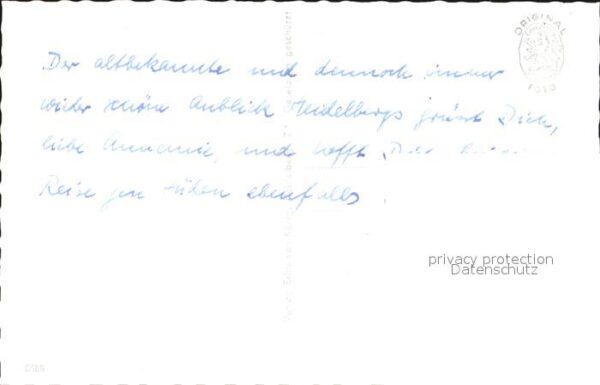 ORIGINAL
FOTO
Der altbekannte und dennoch immer
wieder schöne Anblick Heidelbergs grüsst Dich,
liebe Annemie, und hofft
Reise gen Süden ebenfalls.
geschützt
Verlag
privacy protection
Datenschutz